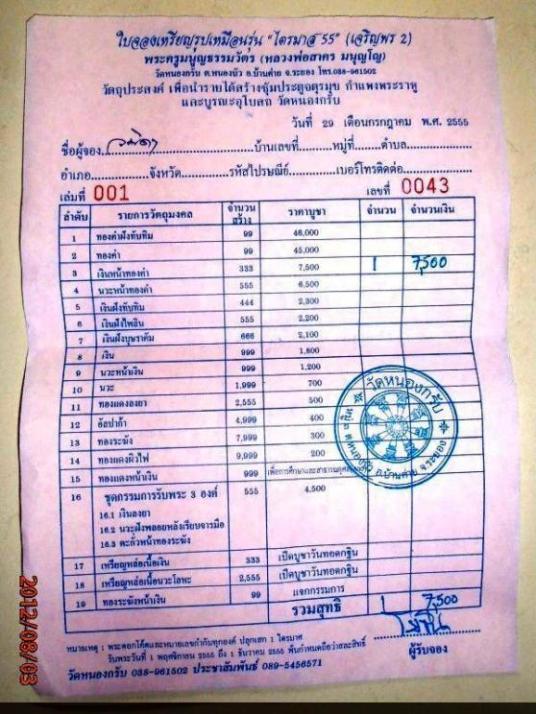 ใบจองเหรียญรูปเหมือนรุ่น "ไตรมาส 55" (เจริญพร 2)
พระครูมนูญธรรมวัตร (หลวงพ่อสาคร มนุญโญ)
วัดหนองกรับ ต.หนองบัว อ.บ้านค่าย จ.ระยอง โทร.038-961502
วัตถุประสงค์ เพื่อนำรายได้สร้างซุ้มประตูจตุรมุข กำแพงพระราหู
และบูรณะอุโบสถ วัดหนองกรับ
วันที่ 29 เดือนกรกฎาคม พ.ศ. 2555
ชื่อผู้จอง..........บ้านเลขที่..........หมู่ที่..........ตำบล..........
อำเภอ..........จังหวัด..........รหัสไปรษณีย์..........เบอร์โทรติดต่อ..........
เล่มที่ 001 เลขที่ 0043
ลำดับ รายการวัตถุมงคล จำนวนสร้าง ราคาบูชา จำนวน จำนวนเงิน
1 ทองคำฝังทับทิม 99 46,000
2 ทองคำ 99 45,000
3 เงินหน้าทองคำ 333 7,500 1 7,500
4 นวะหน้าทองคำ 555 6,500
5 เงินฝังทับทิม 444 2,300
6 เงินฝังไพลิน 555 2,200
7 เงินฝังบุษราคัม 666 2,100
8 เงิน 999 1,800
9 นวะหน้าเงิน 999 1,200
10 นวะ 1,999 700
11 ทองแดงลงยา 2,555 500
12 อัลปาก้า 4,999 400
13 ทองระฆัง 7,999 300
14 ทองแดงผิวไฟ 9,999 200
15 ทองแดงหน้าเงิน 999 เพื่อการศึกษาและสาธารณกุศล
16 ชุดกรรมการรับพระ 3 องค์ 555 4,500
16.1 เงินลงยา
16.2 นวะฝังพลอยหลังเรียบจารมือ
16.3 ตะกั่วหน้าทองระฆัง
17 เหรียญหล่อเนื้อเงิน 333 เปิดบูชาวันทอดกฐิน
18 เหรียญหล่อเนื้อนวะโลหะ 2,555 เปิดบูชาวันทอดกฐิน
19 ทองระฆังหน้าเงิน 99 แจกกรรมการ
รวมสุทธิ 1 7,500
วัดหนองกรับ
ต.หนองบัว อ.บ้านค่าย จ.ระยอง
หมายเหตุ : พระตอกโค๊ตและหมายเลขกำกับทุกองค์ ปลุกเสก 1 ไตรมาส
รับพระวันที่ 1 พฤศจิกายน 2555 ถึง 1 ธันวาคม 2555 พ้นกำหนดถือว่าสละสิทธิ์
ผู้รับจอง
วัดหนองกรับ 038-961502 ประชาสัมพันธ์ 089-5456571
2012/08/03